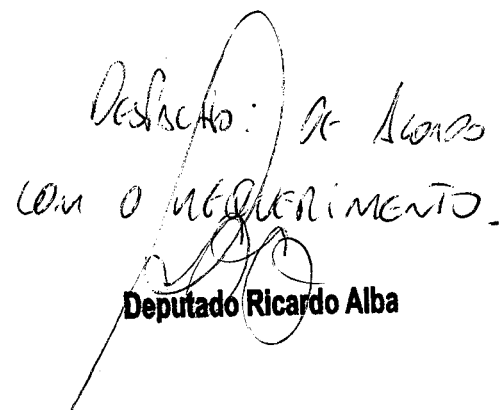 DESPACHO: DE ACORDO
COM O REQUERIMENTO.
Deputado Ricardo Alba